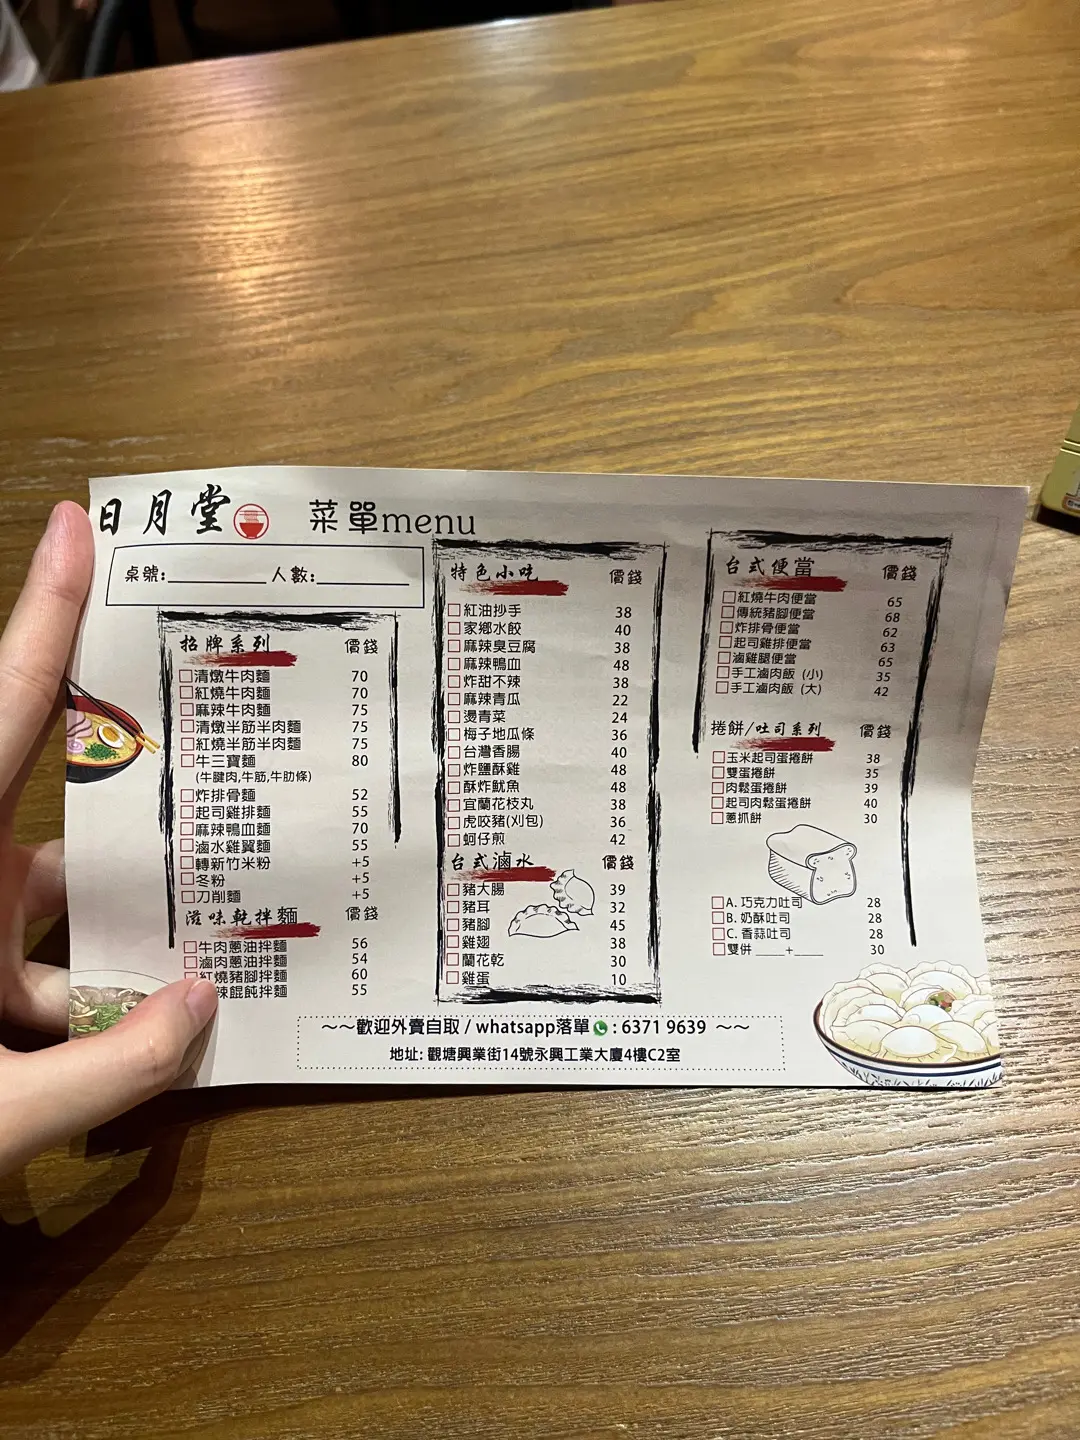 日月堂
菜單menu
桌號:__________ 人數:__________
招牌系列 價錢
清燉牛肉麵 70
紅燒牛肉麵 70
麻辣牛肉麵 75
清燉半筋半肉麵 75
紅燒半筋半肉麵 75
牛三寶麵 80
(牛腱肉,牛筋,牛肋條)
炸排骨麵 52
起司雞排麵 55
麻辣鴨血麵 70
滷水雞翼麵 55
轉新竹米粉 +5
冬粉 +5
刀削麵 +5
滋味乾拌麵 價錢
牛肉蔥油拌麵 56
滷肉蔥油拌麵 54
紅燒豬腳拌麵 60
辣餛飩拌麵 55
特色小吃 價錢
紅油抄手 38
家鄉水餃 40
麻辣臭豆腐 38
麻辣鴨血 48
炸甜不辣 38
麻辣青瓜 22
燙青菜 24
梅子地瓜條 36
台灣香腸 40
炸鹽酥雞 48
酥炸魷魚 48
宜蘭花枝丸 38
虎咬豬(刈包) 36
蚵仔煎 42
台式滷水 價錢
豬大腸 39
豬耳 32
豬腳 45
雞翅 38
蘭花乾 30
雞蛋 10
台式便當 價錢
紅燒牛肉便當 65
傳統豬腳便當 68
炸排骨便當 62
起司雞排便當 63
滷雞腿便當 65
手工滷肉飯 (小) 35
手工滷肉飯 (大) 42
捲餅/吐司系列 價錢
玉米起司蛋捲餅 38
雙蛋捲餅 35
肉鬆蛋捲餅 39
起司肉鬆蛋捲餅 40
蔥抓餅 30
A. 巧克力吐司 28
B. 奶酥吐司 28
C. 香蒜吐司 28
雙併 ____+____ 30
~~歡迎外賣自取 / whatsapp落單 : 6371 9639 ~~
地址: 觀塘興業街14號永興工業大廈4樓C2室